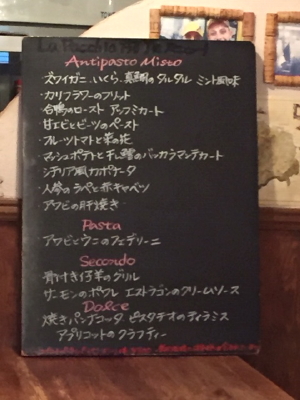 Antipasto Misto
ズワイガニ、いくら、真鯛のタルタル ミント風味
・カリフラワーのフリット
合鴨のロースト アッフミカート
甘エビとビーツのペースト
・フルーツトマトと菜の花
・マッシュポテトと干し鱈のバッカラマンテカート
・シチリア風カポナータ
・人参のラペと赤キャベツ
・アワビの肝焼き
Pasta
アワビとウニのフェデリーニ
Secondo
骨付き仔羊のグリル
サーモンのポワレ エストラゴンのクリームソース
Dolce
焼きパンナコッタ ピスタチオのティラミス
アプリコットのクラフティー